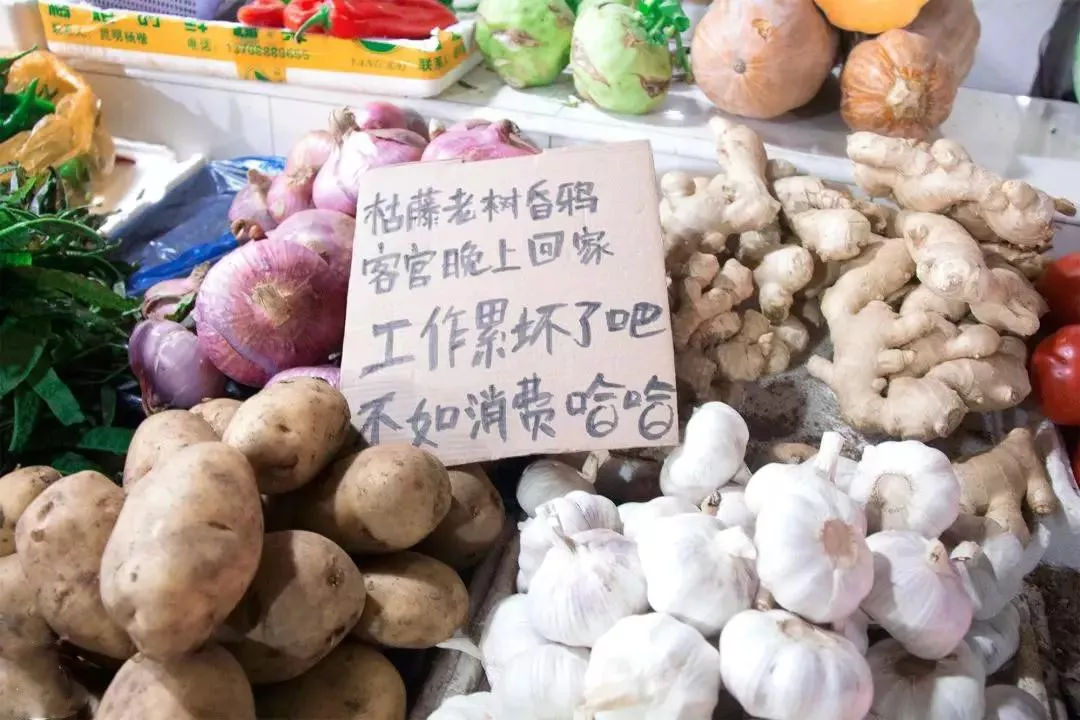 电话 13708889655
联系
枯藤老树昏鸦
客官晚上回家
工作累坏了吧
不如消费哈哈